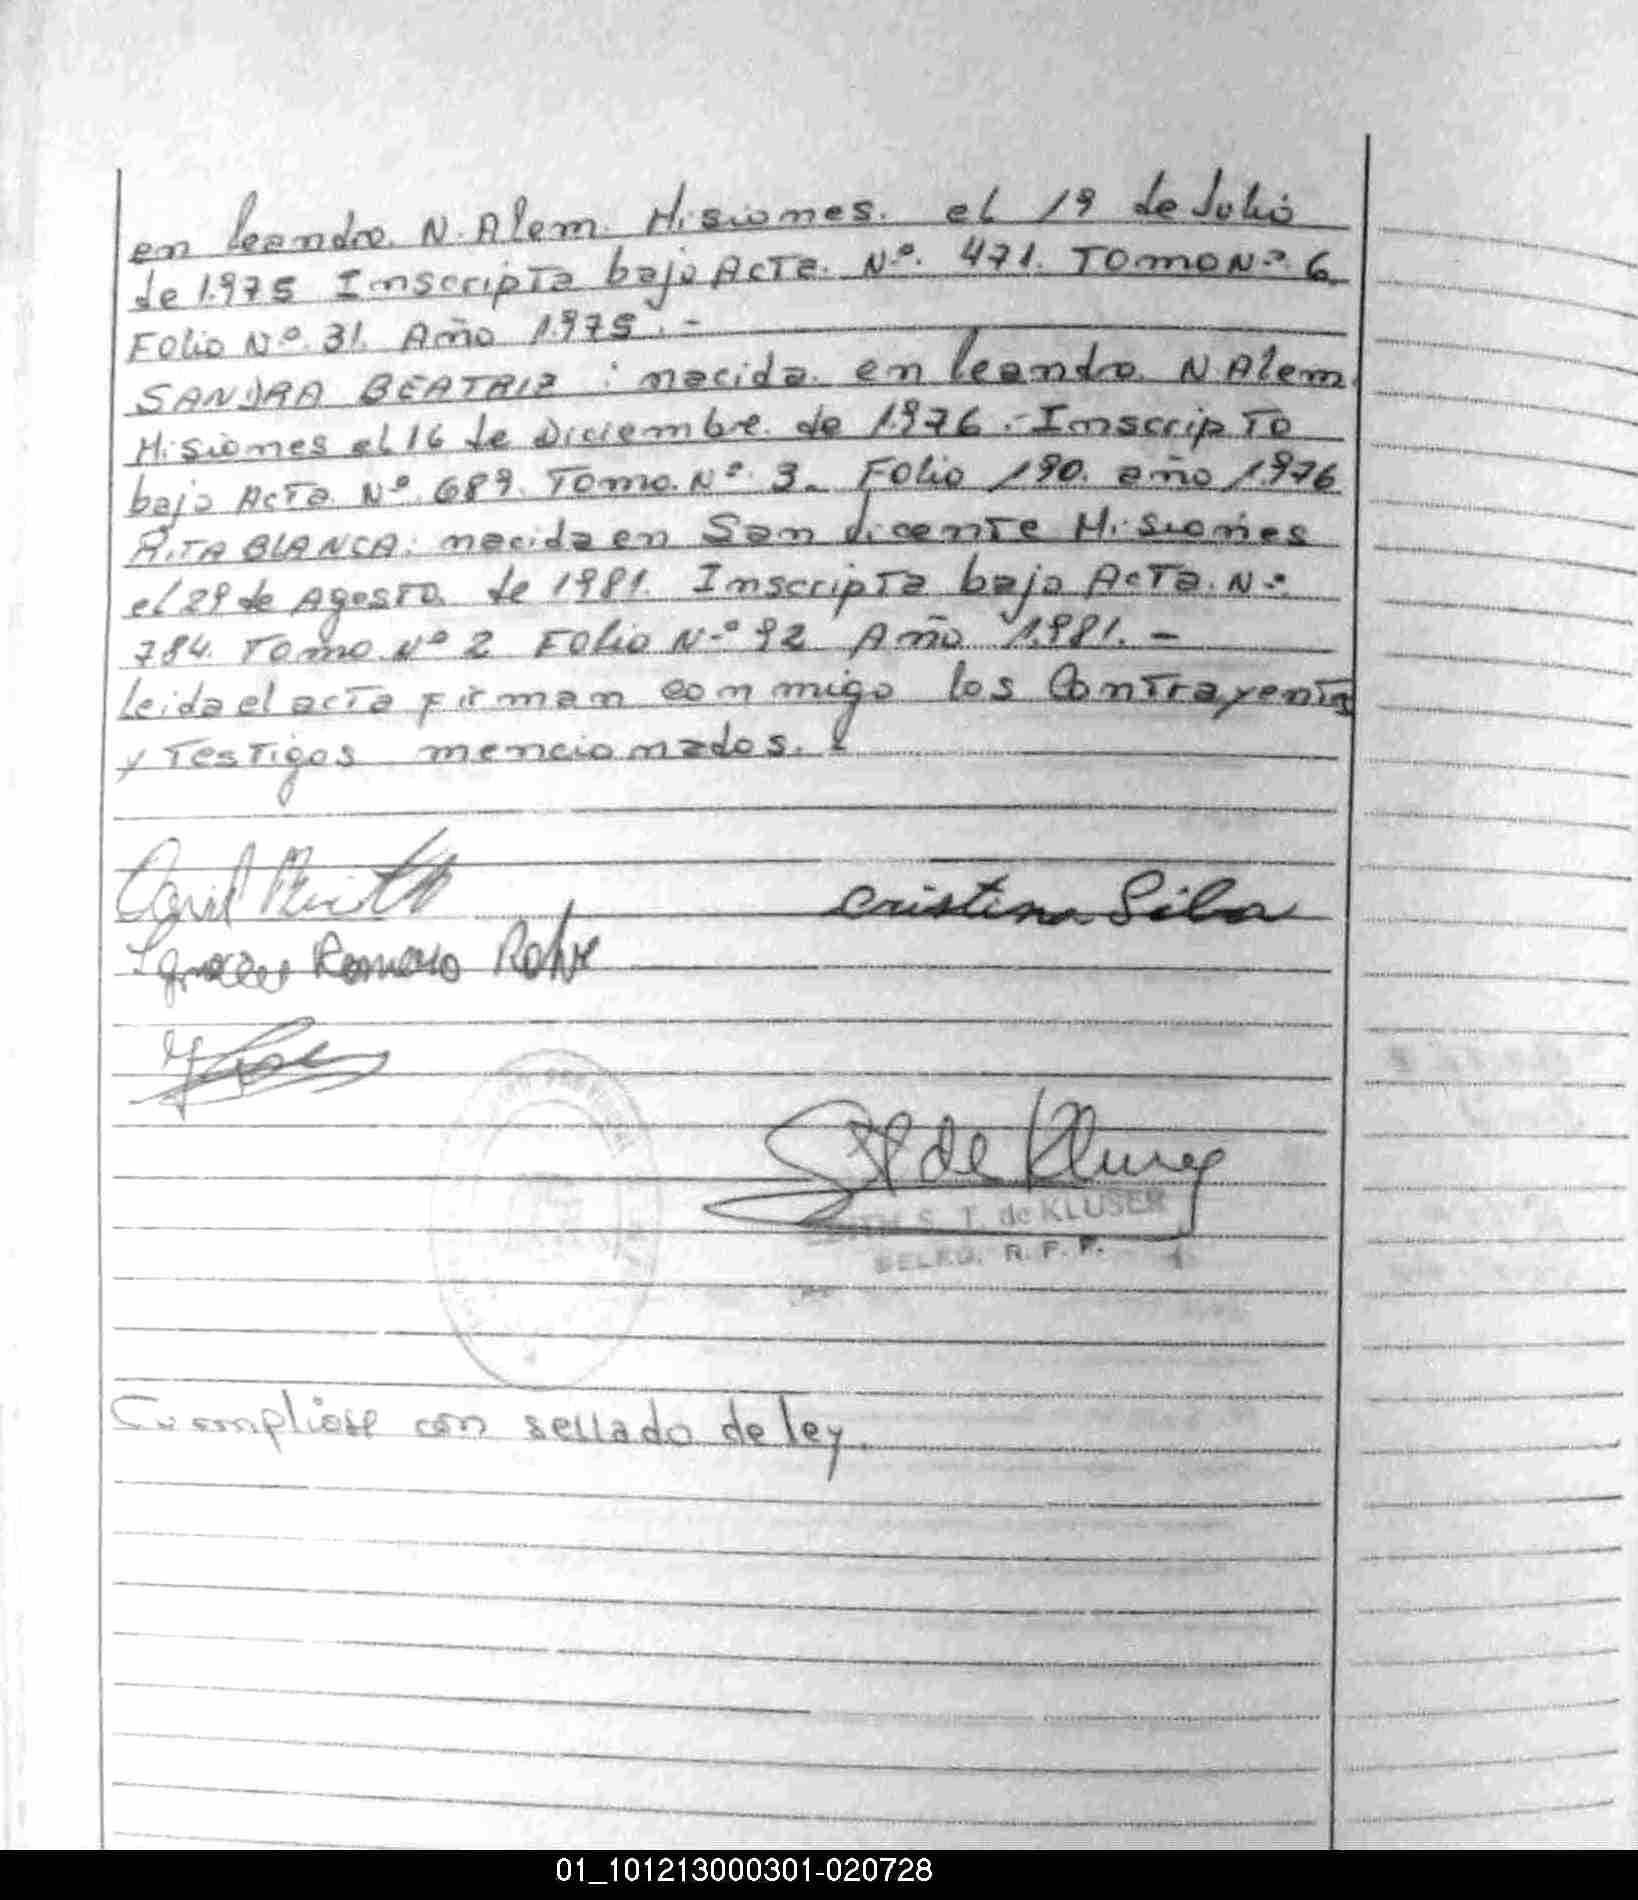 en Leandro. N. Alem. Misiones. el 19 de Julio
de 1.975 Inscripta bajo Acta. Nº. 471. Tomo Nº. 6.
Folio Nº. 31. Año 1.975.-
SANDRA BEATRIZ : nacida. en Leandro. N. Alem.
Misiones el 16 de Diciembre. de 1.976.- Inscripto
bajo Acta. Nº. 689. Tomo. Nº. 3. Folio 190. año 1.976
RITA BLANCA: nacida en San Vicente Misiones
el 29 de Agosto. de 1981. Inscripta bajo Acta. Nº.
784. Tomo. Nº 2 Folio Nº 92 Año 1.981.-
Leida el acta firman conmigo los Contrayentes
y Testigos mencionados.
cristina Silva
Romero
de Kluser
S. T. de KLUSER
R. P. P.
Cumpliose con sellado de ley.
01_101213000301-020728